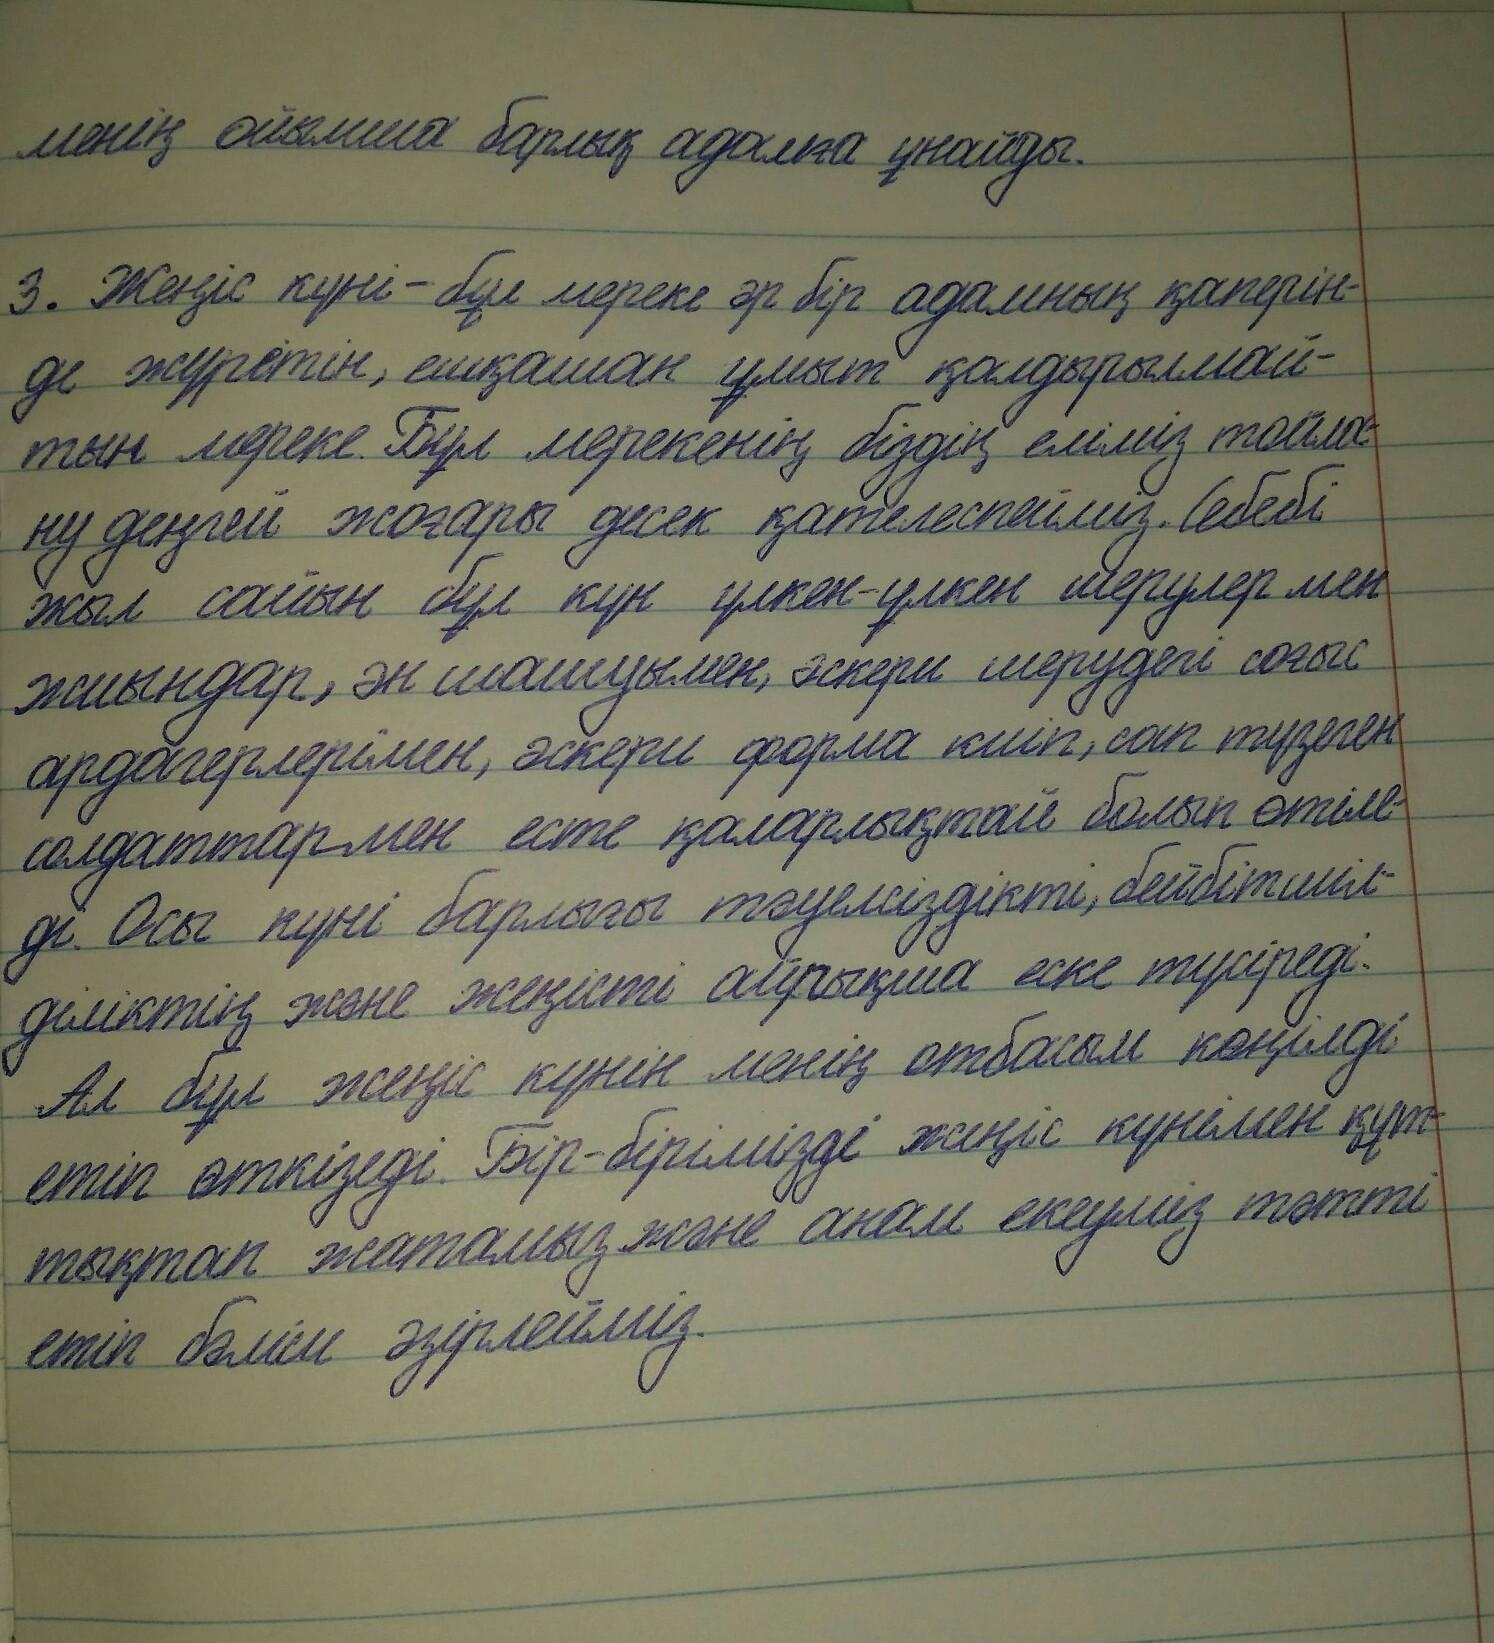 менің ойымша барлық адамға ұнайды.
3. Жеңіс күні - бұл мереке әр бір адамның қаперін-
де жүретін, ешқашан ұмыт қалдырылмай-
тын мереке. Бұл мерекенің біздің еліміз тойла-
ну деңгей жоғары десек қателеспейміз. Себебі
жыл сайын бұл күн үлкен-үлкен шерулер мен
жиындар, ән шашуымен, әскери шерудегі соғыс
ардагерлерімен, әскери форма киіп, сап түзеген
солдаттармен есте қаларлықтай болып өтіле-
ді. Осы күні барлығы тәуелсіздікті, бейбітшіл-
діліктің және жеңісті айрықша еске түсіреді.
Ал бұл жеңіс күнін менің отбасым көңілді
етіп өткізеді. Бір-бірімізді жеңіс күнімен құт-
тықтап жатамыз және анам екеуміз тәтті
етіп бәлім әзірлейміз.